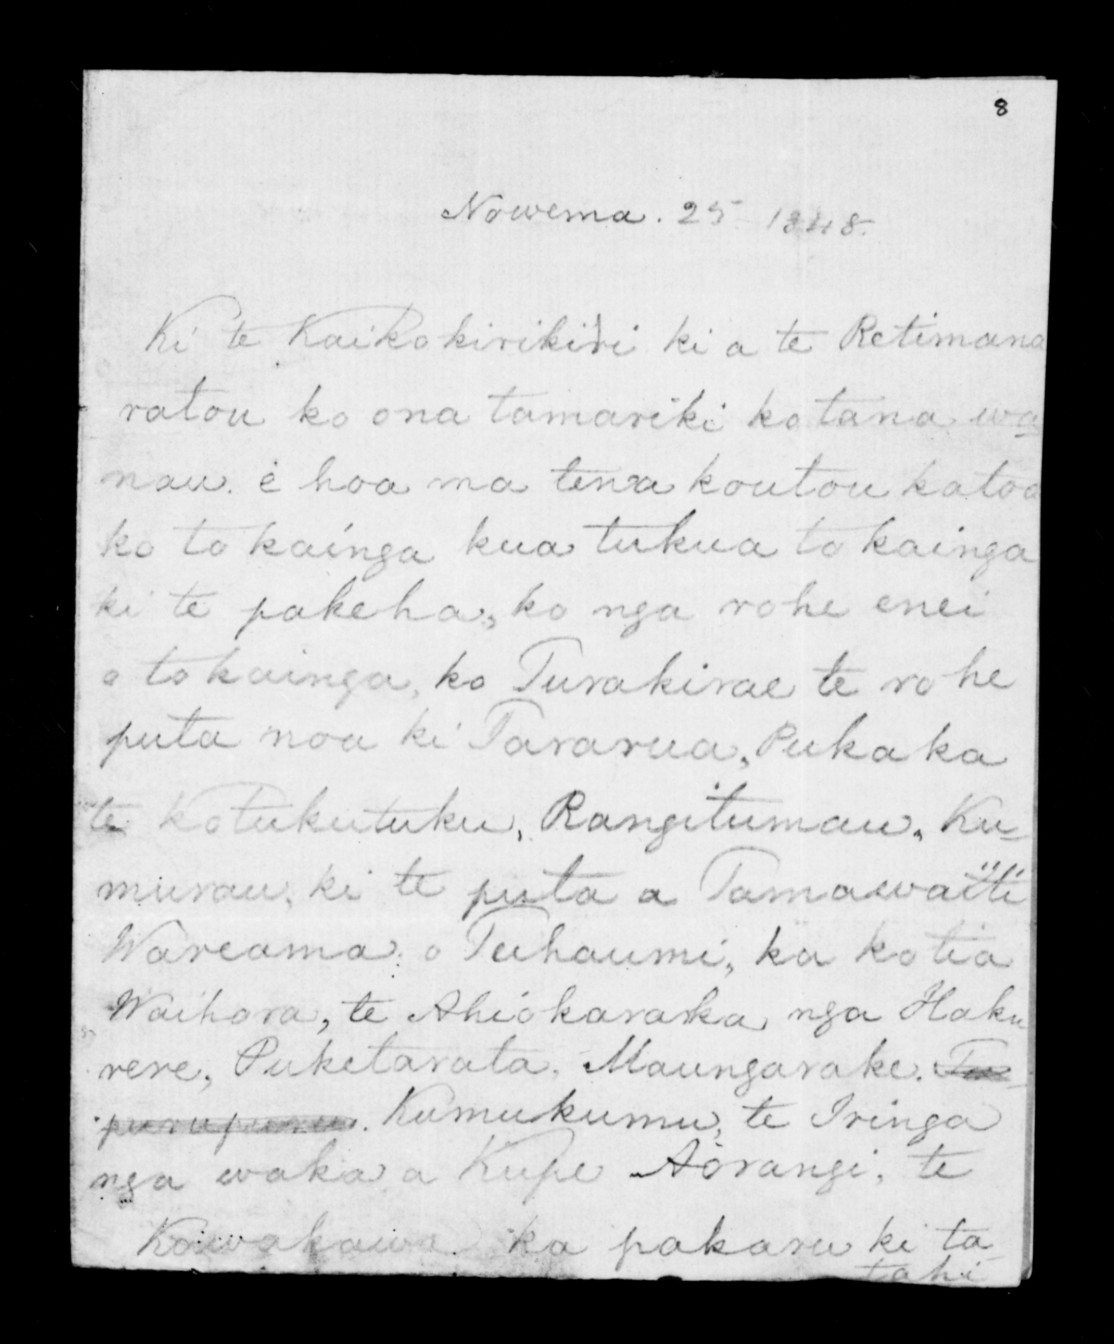 8
Nowema. 25 1848.
Ki te Kaikokirikiri ki a te Retimana
ratou ko ona tamariki ko tana wa
nau. e hoa ma tena koutou katoa
ko to kainga kua tukua to kainga
ki te pakeha, ko nga rohe enei
o to kainga, ko Turakirae te rohe
puta noa ki Tararua, Pukaka
te kotukutuku, Rangitumau, Ku-
murau, ki te puta a Tamawaiti
Wareama o Tuhaumi, ka kotia
Waihora, te Ahiokaraka, nga Haku
rere, Puketarata, Maungarake. Tu-
purupuru. Kumukumu, te Iringa
nga waka a Kupe Aorangi, te
Kawakawa ka pakaru ki ta-
tahi